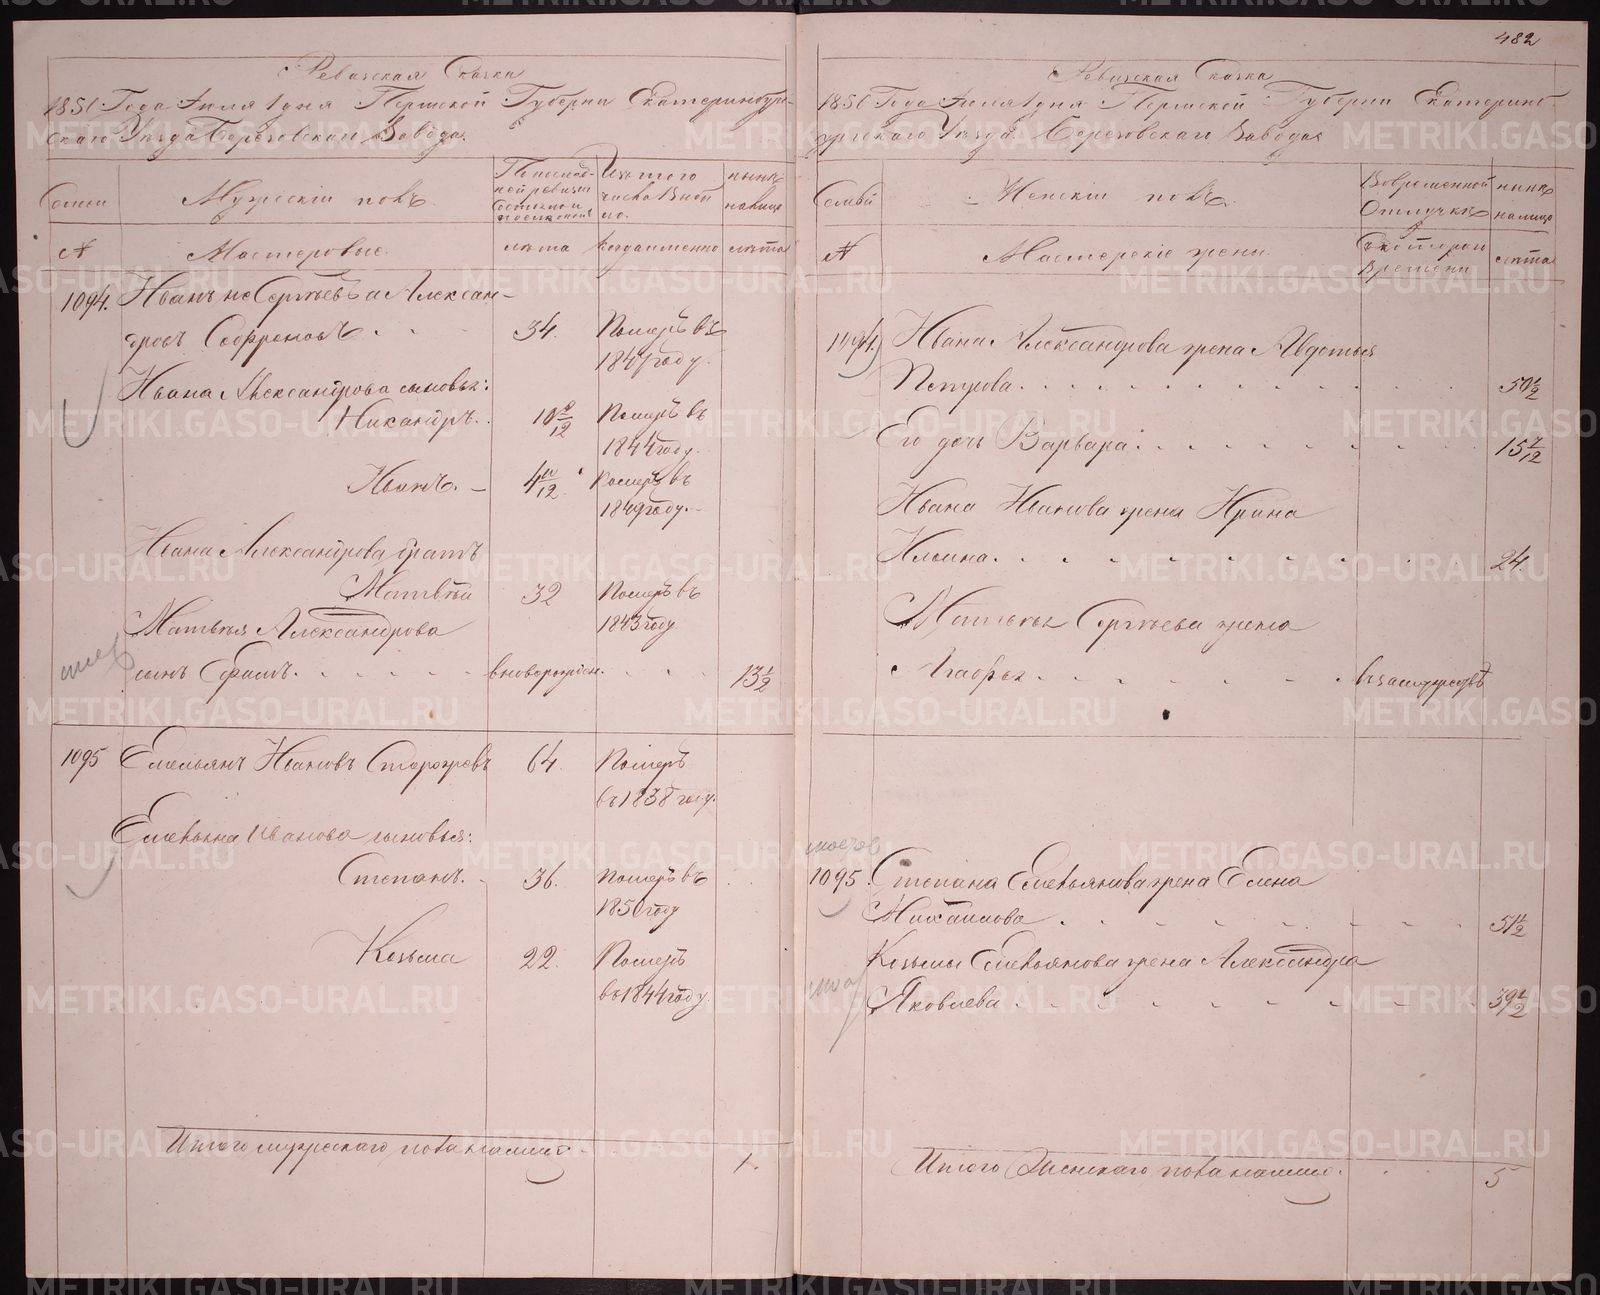 482
Ревизская Сказка
1850 Года Июля 1 дня Пермской Губернии Екатеринбург-
скаго Уезда Березовскаго Завода.
Семьи
Мужескiй полъ.
По последней ревизiи состояло и после оной
Изъ того числа выбыло.
ныне на лицо
№
Мастеровые.
лета
Когда именно
лета
1094.
Иванъ не Сергеевъ а Алексан-
дровъ Софроновъ
34.
Померъ въ
1847 году.
Ивана Александрова сыновья:
Никандръ.
Померъ въ
1844 году.
Иванъ. -
4 10/12
Померъ въ
1849 году. -
Ивана Александрова братъ
Матвей
32
Померъ въ
1843 году
Матвея Александрова
сынъ Ефимъ.
вноворожден.
13 1/2
1095
Емельянъ Ивановъ
64.
Померъ
въ 1838 году.
Емельяна Иванова сыновья:
Степанъ. -
36.
Померъ въ
1850 году
Козьма
22.
Померъ
въ 1844 году.
Итого мужескаго пола налицо
1.
Ревизская Сказка
1850 Года Июля 1 дня Пермской Губернии Екатеринб-
ургскаго Уезда Березовскаго Завода
Семьи
Женскiй полъ.
Во временной Отлучке
ныне на лицо
№
Мастерскiе жены.
Съ котораго Времени
лета
1094.
Ивана Александрова жена Авдотья
Петрова.
50 1/2
Его дочь Варвара
15 7/12
Ивана Иванова жена Ирина
Ильина.
24.
Матвея Сергеева жена
въ замужестве
1095.
Степана Емельянова жена Елена
Михайлова
51 1/2
Козьмы Емельянова жена Александра
Яковлева
39 1/2
Итого Женскаго пола налицо.
5
METRIKI.GASO-URAL.RU